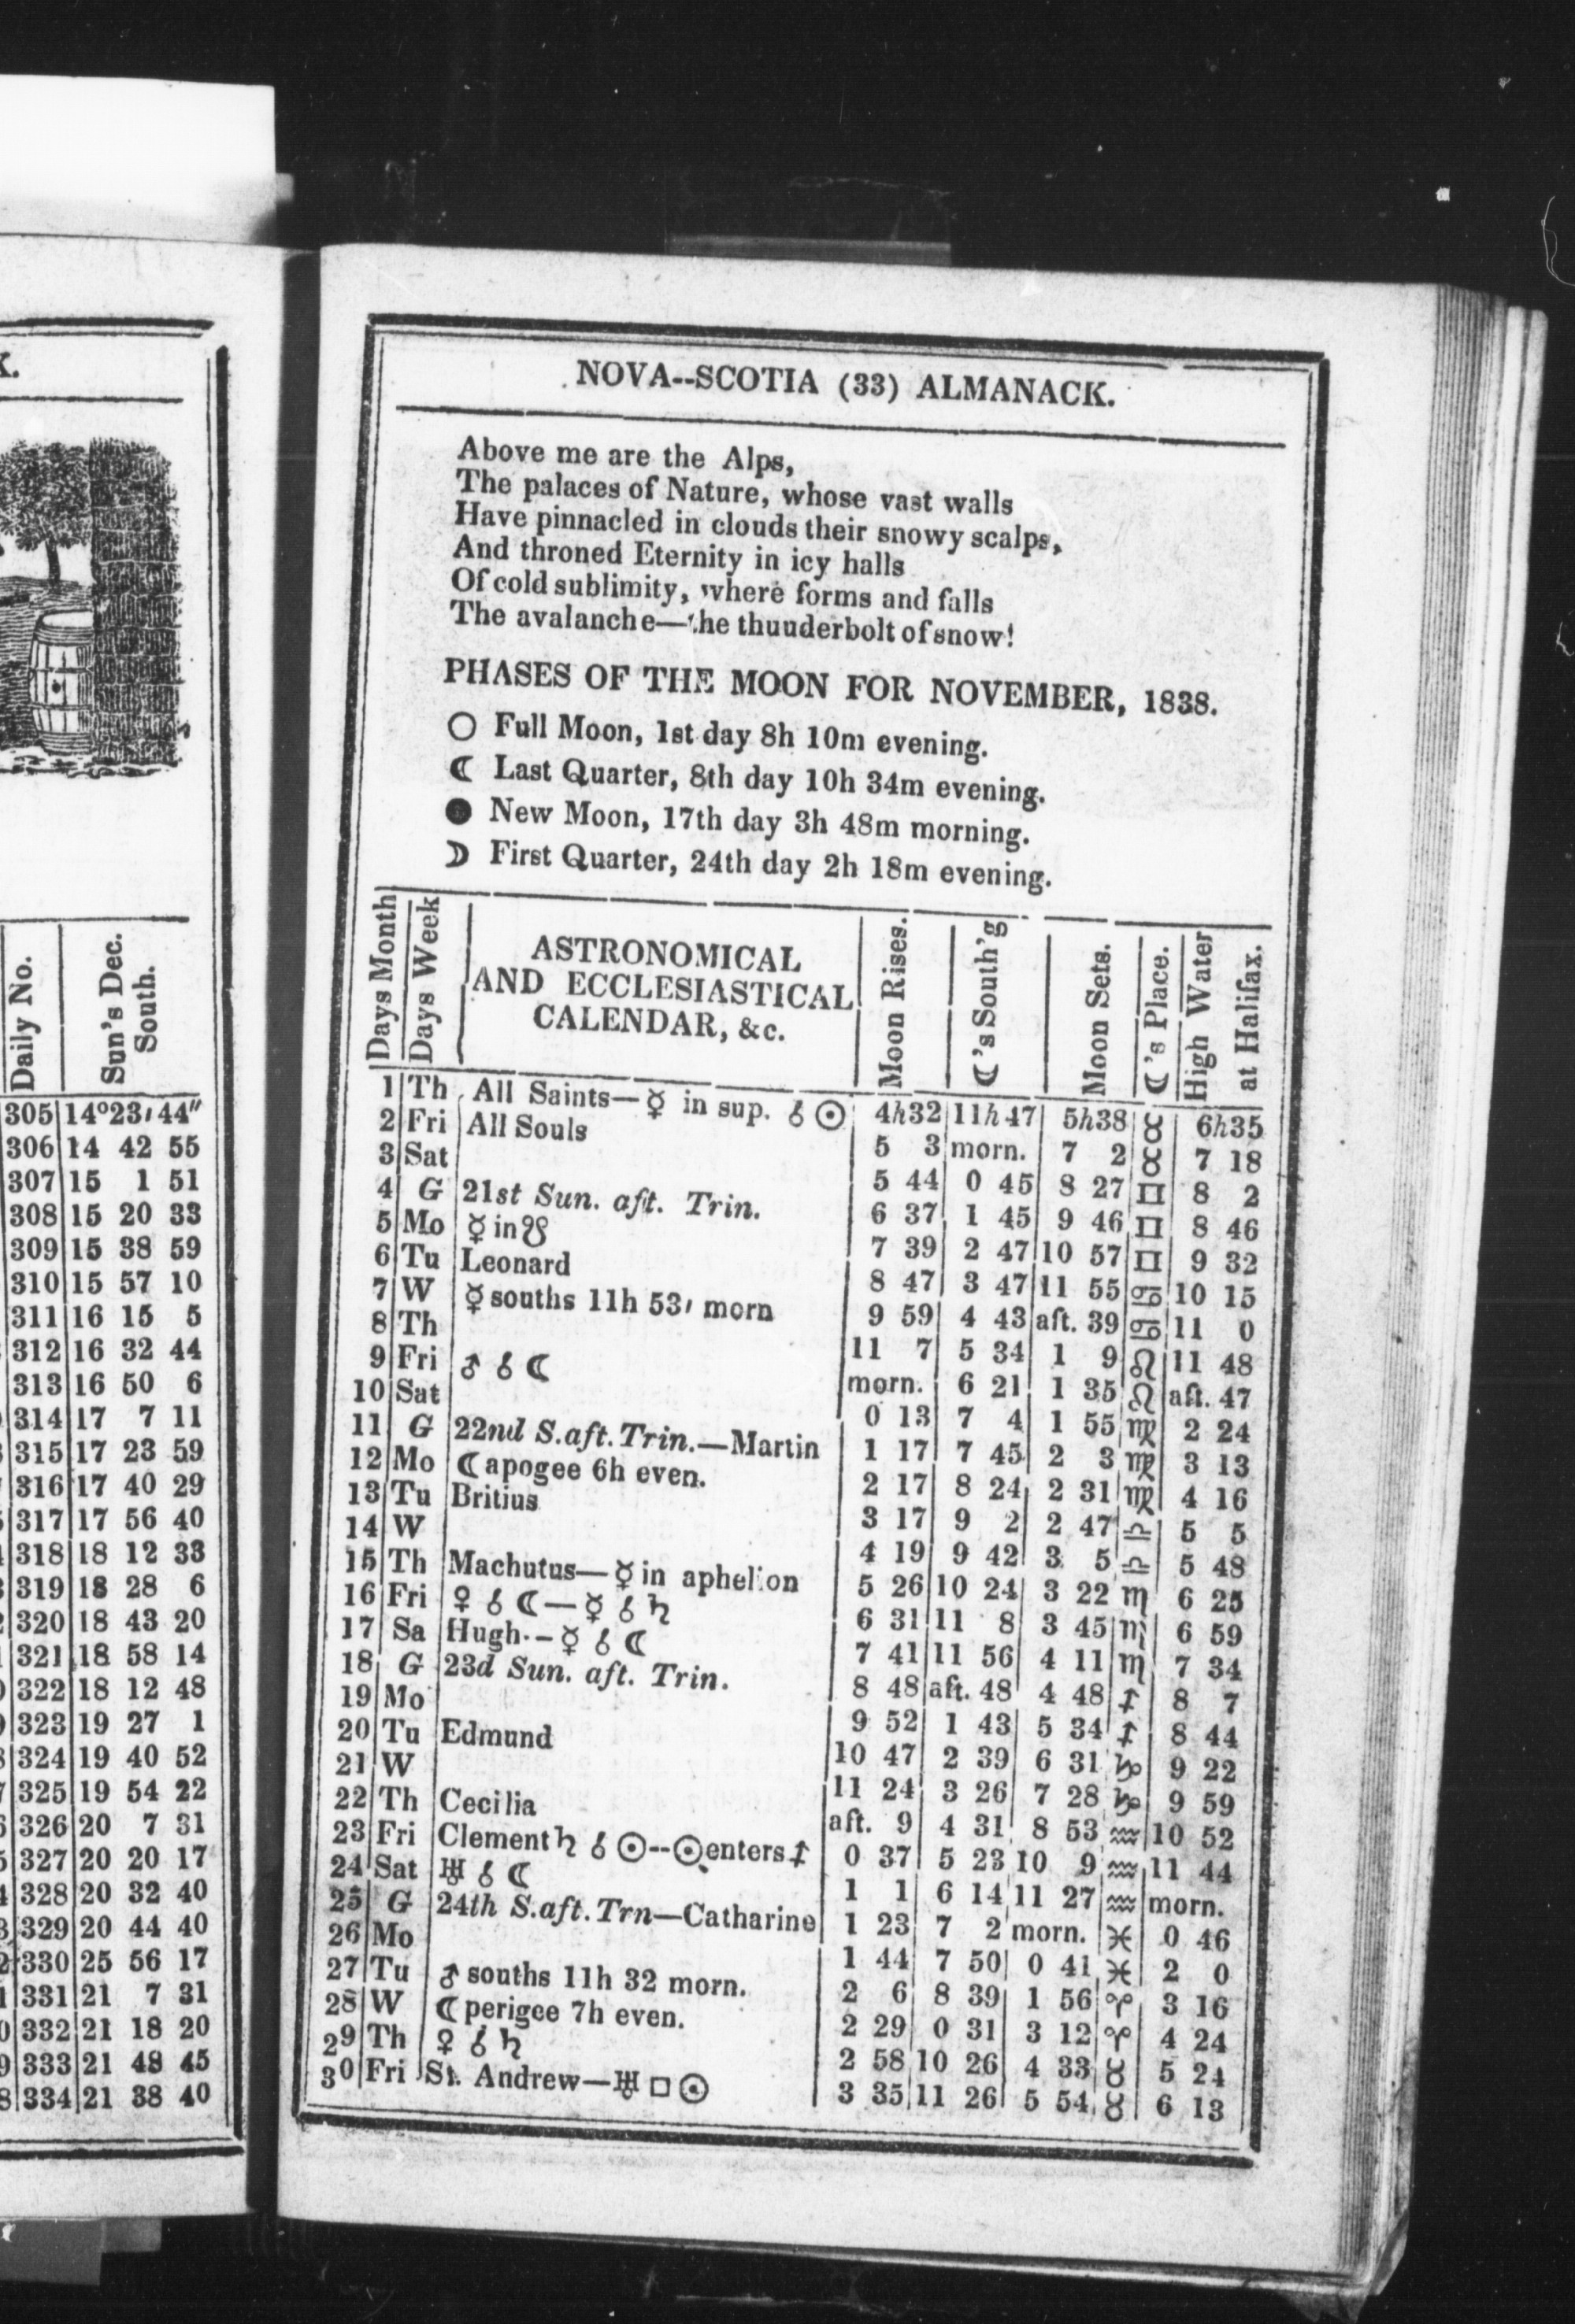 K.
Daily No.
Sun's Dec. South.
305 14°23′44″
306 14 42 55
307 15 1 51
308 15 20 33
309 15 38 59
310 15 57 10
311 16 15 5
312 16 32 44
313 16 50 6
314 17 7 11
315 17 23 59
316 17 40 29
317 17 56 40
318 18 12 33
319 18 28 6
320 18 43 20
321 18 58 14
322 18 12 48
323 19 27 1
324 19 40 52
325 19 54 22
326 20 7 31
327 20 20 17
328 20 32 40
329 20 44 40
330 25 56 17
331 21 7 31
332 21 18 20
333 21 48 45
334 21 38 40
NOVA--SCOTIA (33) ALMANACK.
Above me are the Alps,
The palaces of Nature, whose vast walls
Have pinnacled in clouds their snowy scalps,
And throned Eternity in icy halls
Of cold sublimity, where forms and falls
The avalanche—the thuuderbolt of snow!
PHASES OF THE MOON FOR NOVEMBER, 1838.
○ Full Moon, 1st day 8h 10m evening.
☾ Last Quarter, 8th day 10h 34m evening.
● New Moon, 17th day 3h 48m morning.
☽ First Quarter, 24th day 2h 18m evening.
Days Month
Days Week
ASTRONOMICAL
AND ECCLESIASTICAL
CALENDAR, &c.
Moon Rises.
☾'s South'g
Moon Sets.
☾'s Place.
High Water at Halifax.
1 Th All Saints—☿ in sup. ☌ ☉ 4h32 11h47 5h38 ♉ 6h35
2 Fri All Souls 5 3 morn. 7 2 ♉ 7 18
3 Sat 5 44 0 45 8 27 ♊ 8 2
4 G 21st Sun. aft. Trin. 6 37 1 45 9 46 ♊ 8 46
5 Mo ☿ in ☋ 7 39 2 47 10 57 ♊ 9 32
6 Tu Leonard 8 47 3 47 11 55 ♋ 10 15
7 W ☿ souths 11h 53′ morn 9 59 4 43 aft. 39 ♋ 11 0
8 Th 11 7 5 34 1 9 ♌ 11 48
9 Fri ♂ ☌ ☾ morn. 6 21 1 35 ♌ aft. 47
10 Sat 0 13 7 4 1 55 ♍ 2 24
11 G 22nd S. aft. Trin.—Martin 1 17 7 45 2 3 ♍ 3 13
12 Mo ☾ apogee 6h even. 2 17 8 24 2 31 ♍ 4 16
13 Tu Britius 3 17 9 2 2 47 ♎ 5 5
14 W 4 19 9 42 3 5 ♎ 5 48
15 Th Machutus—☿ in aphelion 5 26 10 24 3 22 ♏ 6 25
16 Fri ♀ ☌ ☾—☿ ☌ ♄ 6 31 11 8 3 45 ♏ 6 59
17 Sa Hugh.-☿ ☌ ☾ 7 41 11 56 4 11 ♏ 7 34
18 G 23d Sun. aft. Trin. 8 48 aft. 48 4 48 ♐ 8 7
19 Mo 9 52 1 43 5 34 ♐ 8 44
20 Tu Edmund 10 47 2 39 6 31 ♑ 9 22
21 W 11 24 3 26 7 28 ♑ 9 59
22 Th Cecilia aft. 9 4 31 8 53 ♒ 10 52
23 Fri Clement ♄ ☌ ☉--☉ enters ♐ 0 37 5 23 10 9 ♒ 11 44
24 Sat ♅ ☌ ☾ 1 1 6 14 11 27 ♒ morn.
25 G 24th S. aft. Trn—Catharine 1 23 7 2 morn. ♓ 0 46
26 Mo 1 44 7 50 0 41 ♓ 2 0
27 Tu ♂ souths 11h 32 morn. 2 6 8 39 1 56 ♈ 3 16
28 W ☾ perigee 7h even. 2 29 0 31 3 12 ♈ 4 24
29 Th ♀ ☌ ♄ 2 58 10 26 4 33 ♉ 5 24
30 Fri St. Andrew—♅ □ ☉ 3 35 11 26 5 54 ♉ 6 13